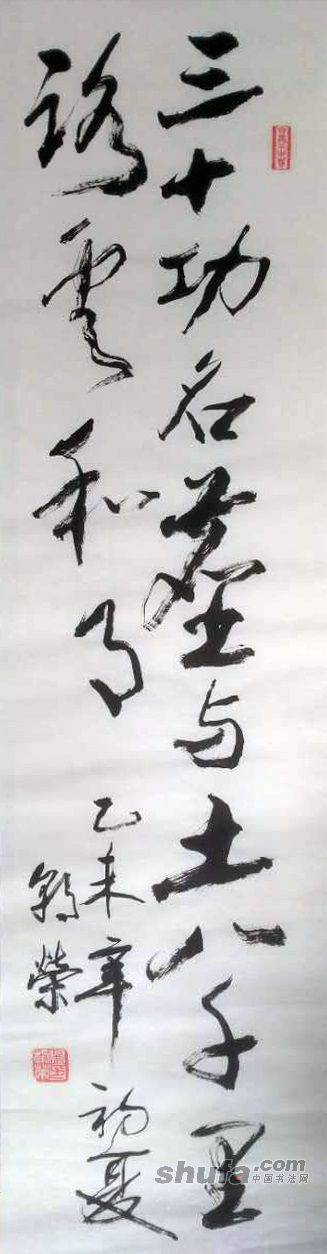 三十功名塵与土八千里
路雲和月
乙未年初夏
榮
shufa.com
中国书法网